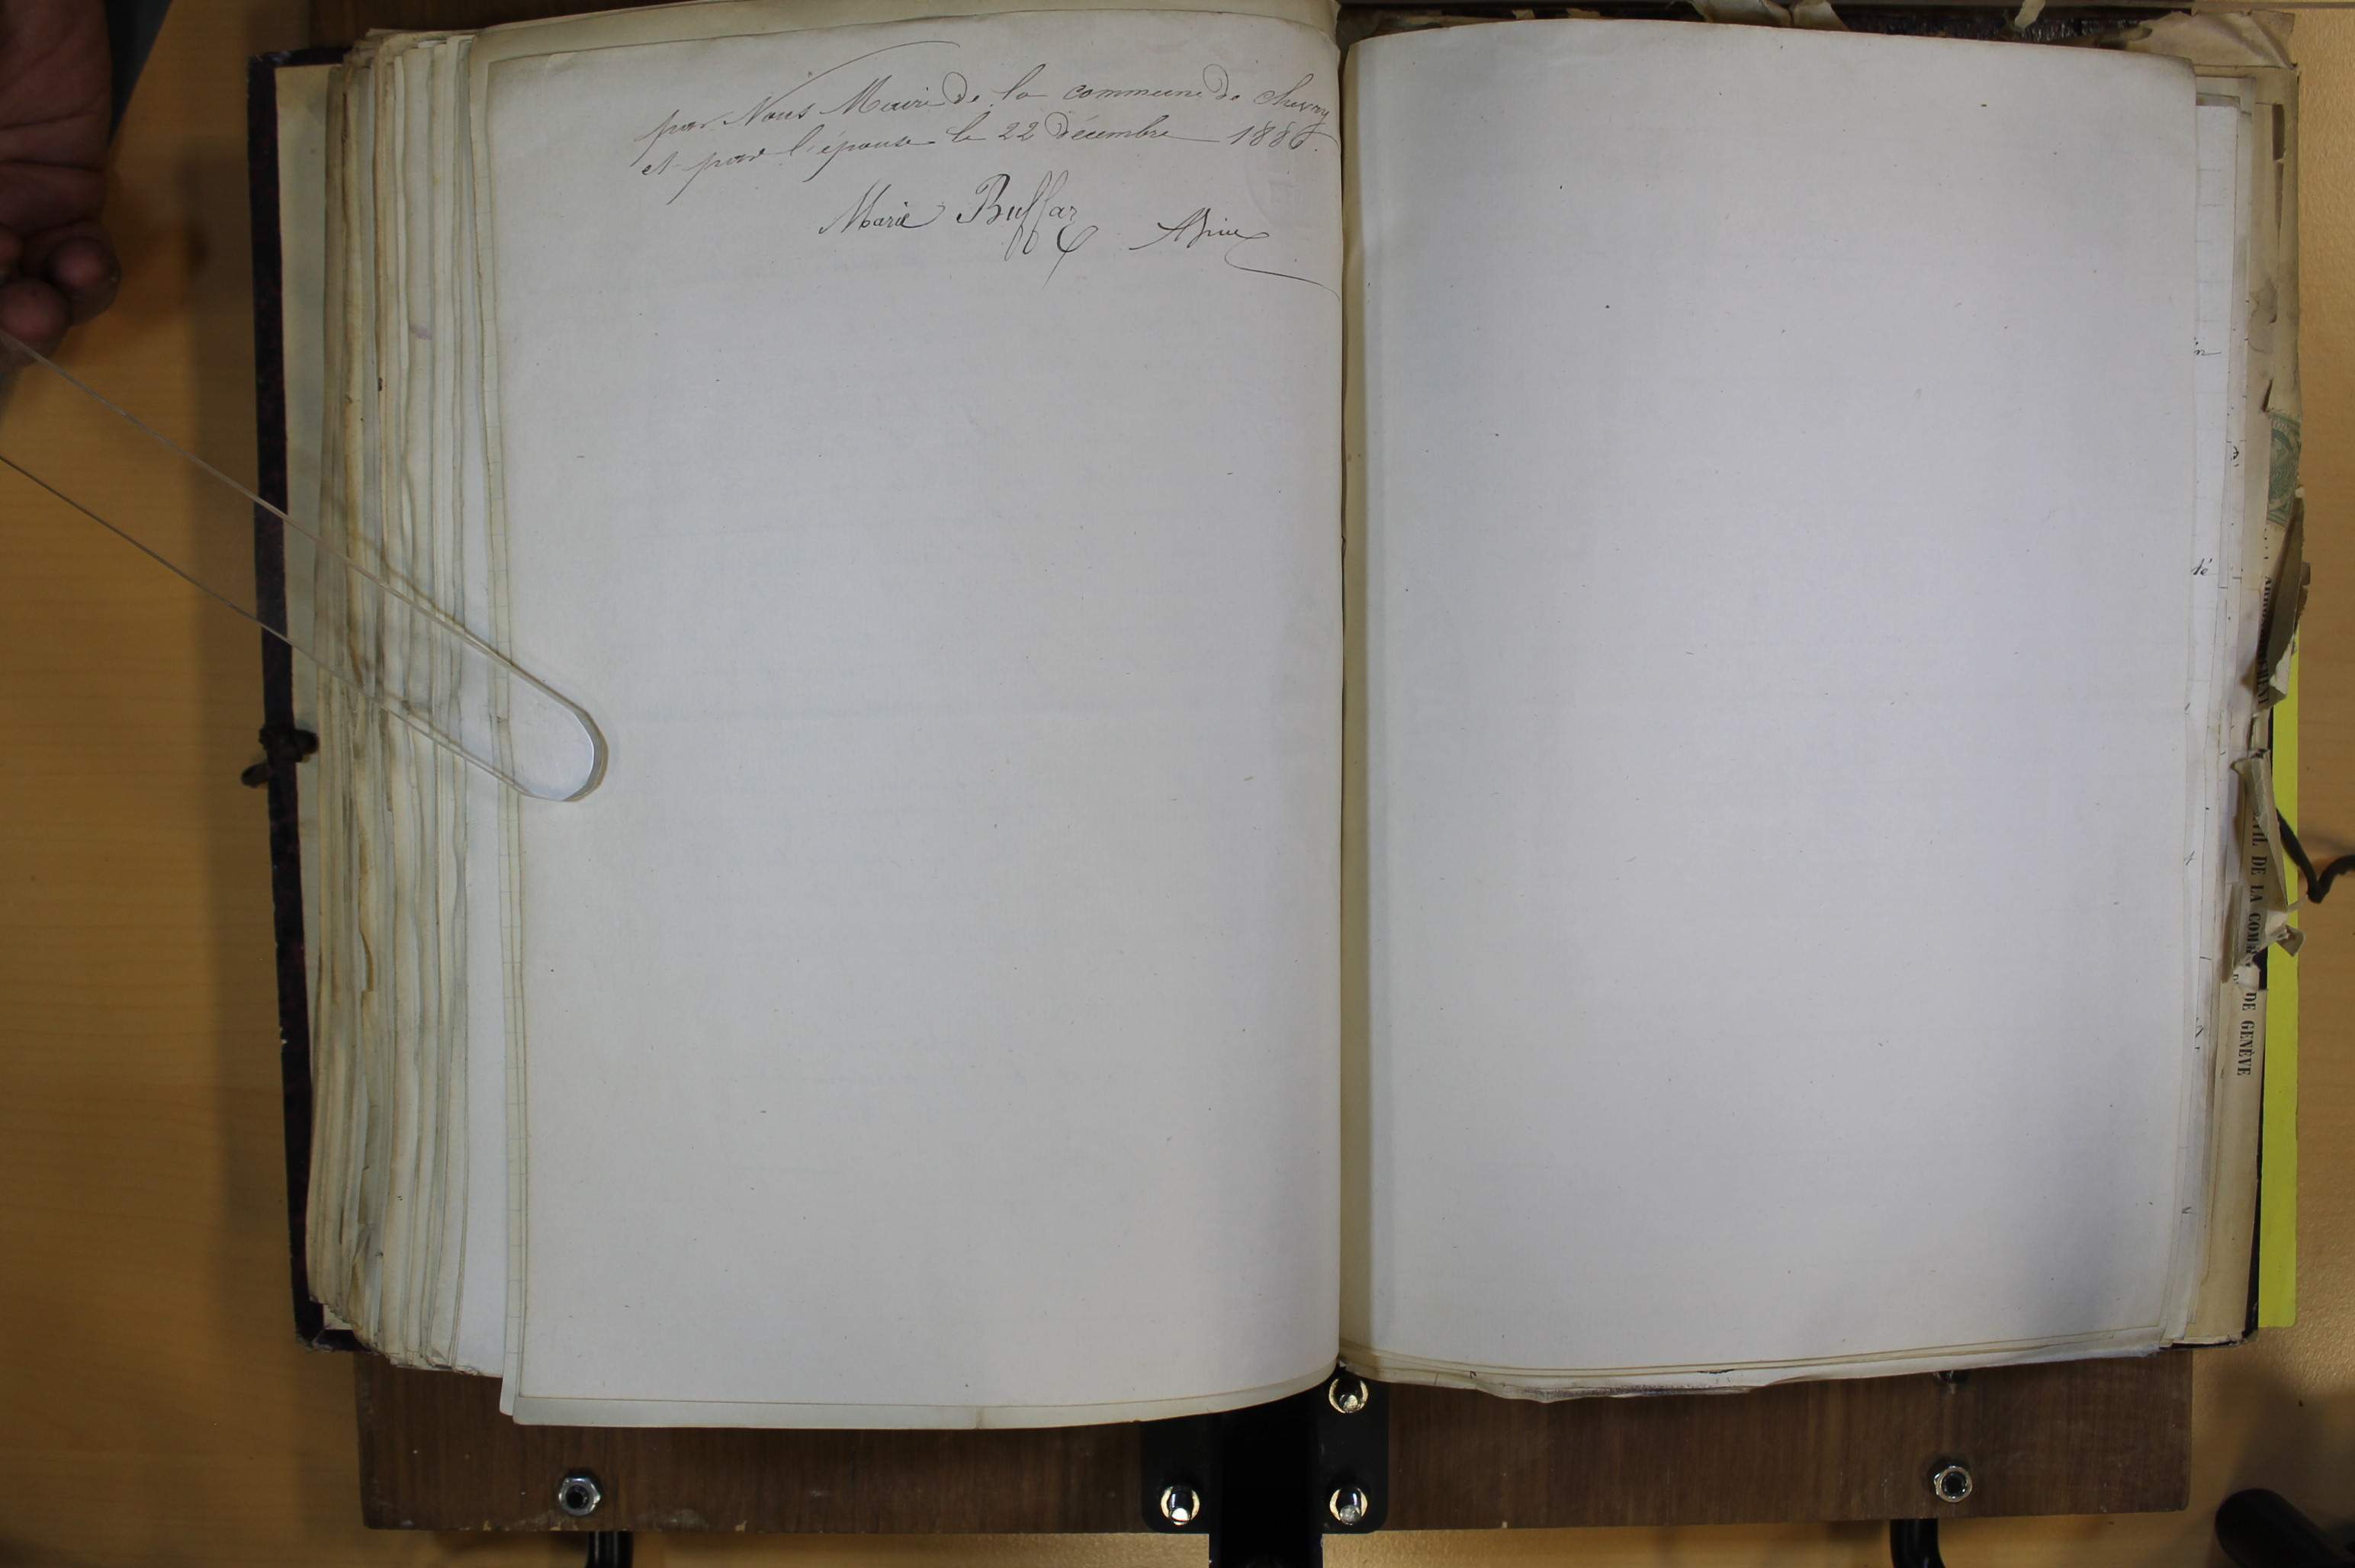 par Nous Maire de la commune de Chevry
et par l'épouse le 22 décembre 1886.
Marie Buffaz
DE LA COM
DE GENÈVE